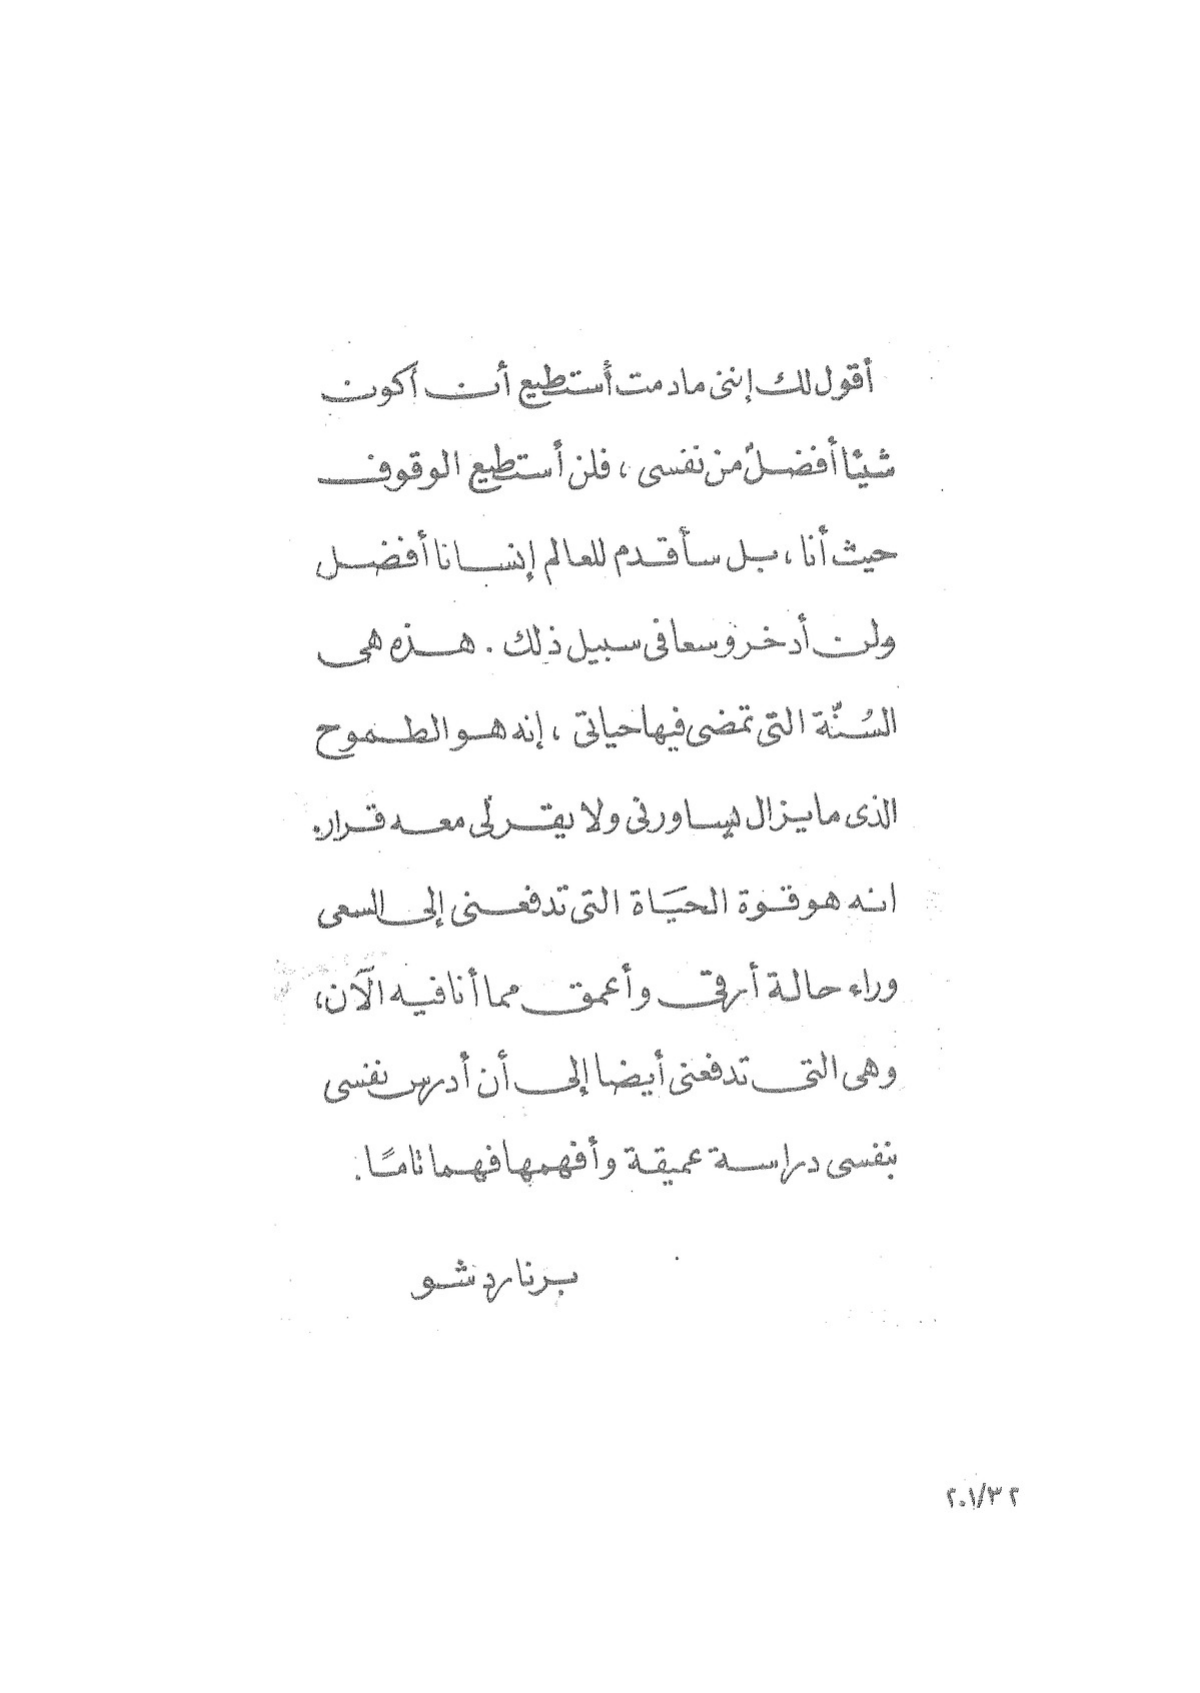 أقول لك إننى مادمت أستطيع أن أكون
شيئا أفضل من نفسى ، فلن أستطيع الوقوف
حيث أنا ، بل سأقدم للعالم إنسانا أفضل
ولن أدخر وسعا فى سبيل ذلك . هذه هى
السُنّة التى تمضى فيها حياتى ، إنه هو الطموح
الذى ما يزال يساورنى ولا يقر لى معه قرار .
انه هو قوة الحيَاة التى تدفعنى إلى السعى
وراء حالة أرقى وأعمق مما أنا فيه الآن ،
وهى التى تدفعنى أيضا إلى أن أدرس نفسى
بنفسى دراسة عميقة وأفهمها فهما تامًا .
برنارد شو
٢٠١/٣٢